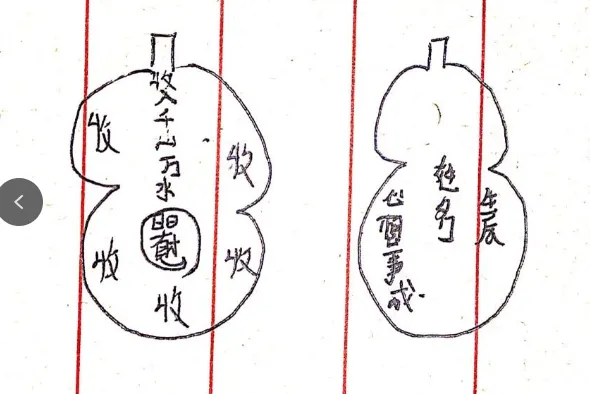 收千山万水
收
收
收
收
收
姓名
生辰
心事成